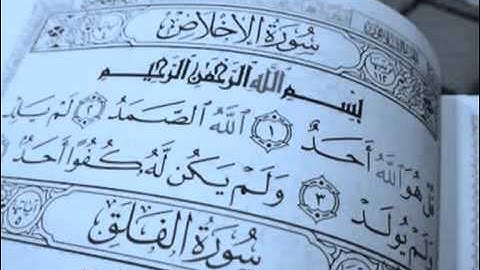 سُورَةُ الإِخْلَاصِ
بِسْمِ ٱللَّهِ ٱلرَّحْمَٰنِ ٱلرَّحِيمِ
قُلْ هُوَ ٱللَّهُ أَحَدٌ ١ ٱللَّهُ ٱلصَّمَدُ ٢ لَمْ يَلِدْ
وَلَمْ يُولَدْ ٣ وَلَمْ يَكُن لَّهُۥ كُفُوًا أَحَدٌ
سُورَةُ الفَلَقِ